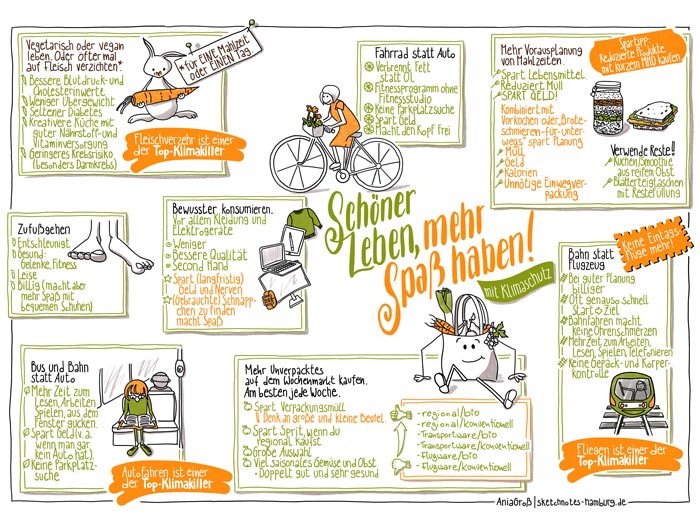 Vegetarisch oder vegan
leben. Oder öfter mal
auf Fleisch verzichten*.
Bessere Blutdruck- und
Cholesterinwerte
Weniger Übergewicht
Seltener Diabetes
Kreativere Küche mit
guter Nährstoff- und
Vitaminversorgung
Geringeres Krebsrisiko
(besonders Darmkrebs)
*für EINE Mahlzeit
oder EINEN Tag
Fleischverzehr ist einer
der Top-Klimakiller
Fahrrad statt Auto
Verbrennt Fett
statt Öl
Fitnessprogramm ohne
Fitnessstudio
Keine Parkplatzsuche
Spart Geld
Macht den Kopf frei
Mehr Vorausplanung
von Mahlzeiten.
Spart Lebensmittel
Reduziert Müll
SPART GELD!
Kombiniert mit
Vorkochen oder Brote-
schmieren-für-unter-
wegs* spart Planung
Müll
Geld
Kalorien
Unnötige Einwegver-
packung
Spartipp:
Reduzierte Produkte
mit kurzem MHD kaufen
Verwende Reste!
Kuchen/Smoothie
aus reifem Obst
Blätterteigtaschen
mit Restefüllung
Zufußgehen
Entschleunigt
Gesund:
Gelenke, Fitness
Leise
Billig (macht aber
mehr Spaß mit
bequemen Schuhen)
Bewusster konsumieren.
Vor allem Kleidung und
Elektrogeräte
Weniger
Bessere Qualität
Second Hand
Spart (langfristig)
Geld und Nerven
(Gebrauchte) Schnäpp-
chen zu finden
macht Spaß
Schöner
Leben, mehr
Spaß haben!
mit Klimaschutz
Bahn statt
Flugzeug
Keine Eintags-
flüge mehr!
Bei guter Planung
billiger
Oft genauso schnell
Start → Ziel
Bahnfahren macht
keine Ohrenschmerzen
Mehr Zeit zum Arbeiten,
Lesen, Spielen, Telefonieren
Keine Gepäck- und Körper-
kontrolle
Fliegen ist einer der
Top-Klimakiller
Bus und Bahn
statt Auto
Mehr Zeit zum
Lesen, Arbeiten,
Spielen, aus dem
Fenster gucken.
Spart Geld (v.a.
wenn man gar
kein Auto hat).
Keine Parkplatz-
suche
Autofahren ist einer
der Top-Klimakiller
Mehr Unverpacktes
auf dem Wochenmarkt kaufen.
Am besten jede Woche.
Spart Verpackungsmüll
Denk an große und kleine Beutel.
Spart Sprit, wenn du
regional kaufst
Große Auswahl
Viel saisonales Gemüse und Obst
- Doppelt gut und sehr gesund
- regional/bio
- regional/konventionell
- Transportware/bio
- Transportware/konventionell
- Flugware/bio
- Flugware/konventionell
AniaGroß | sketchnotes-hamburg.de